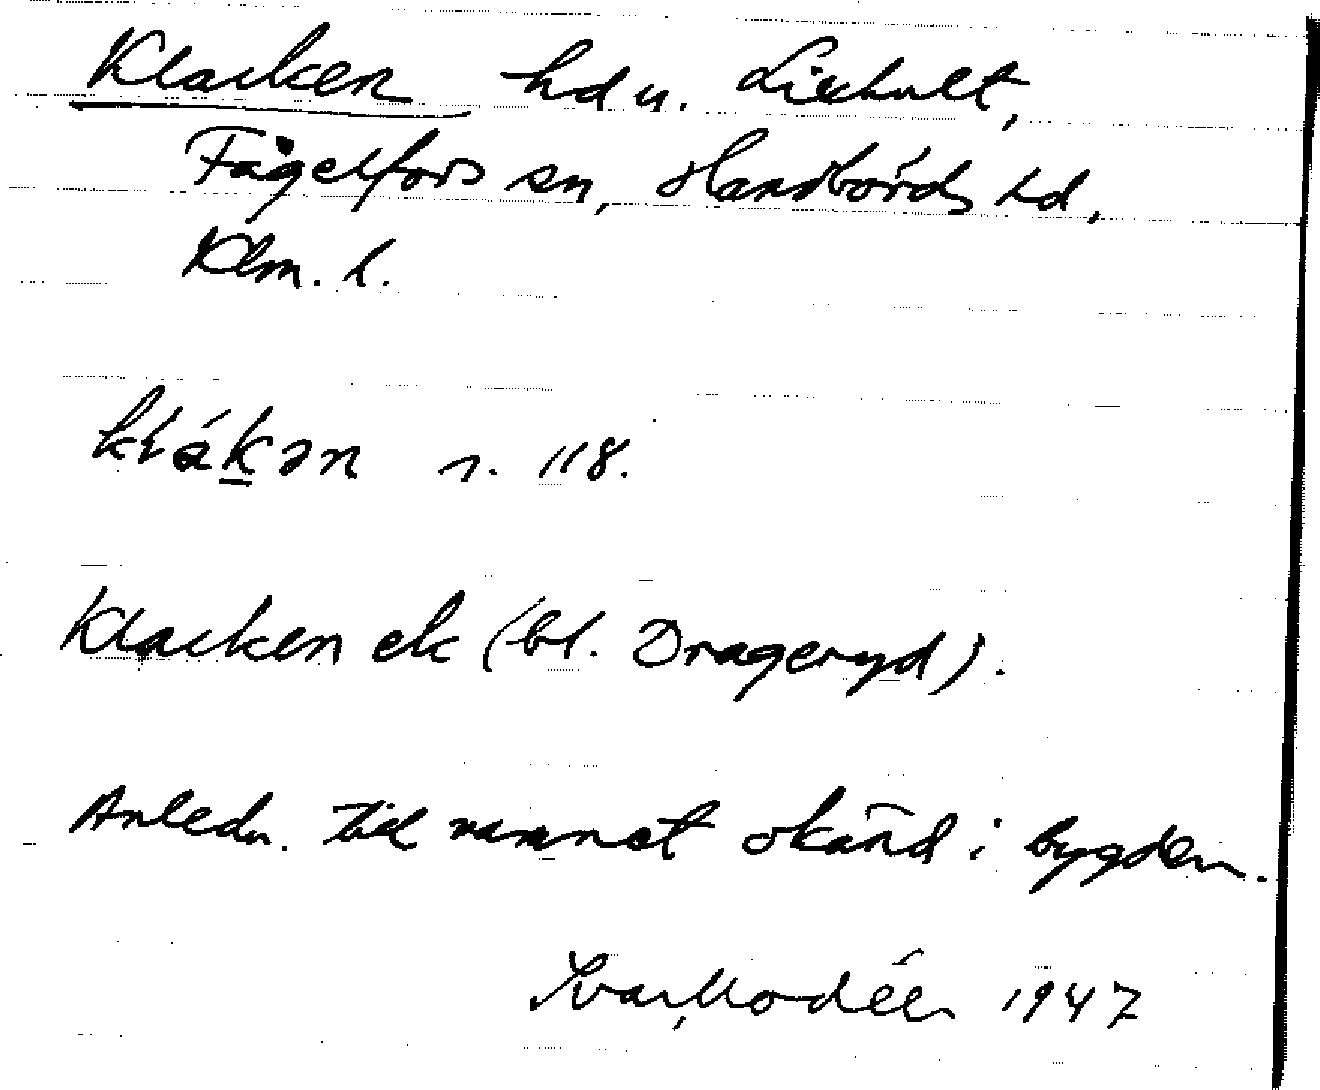 Klacken hd u. Lixhult,
Fågelfors sn, Handbörds hd,
Klm. l.
klákən r. 118.
Klacken ek (bl. Drageryd).
Anledn. till namnet okänd i bygden.
Ivar Modéer 1947